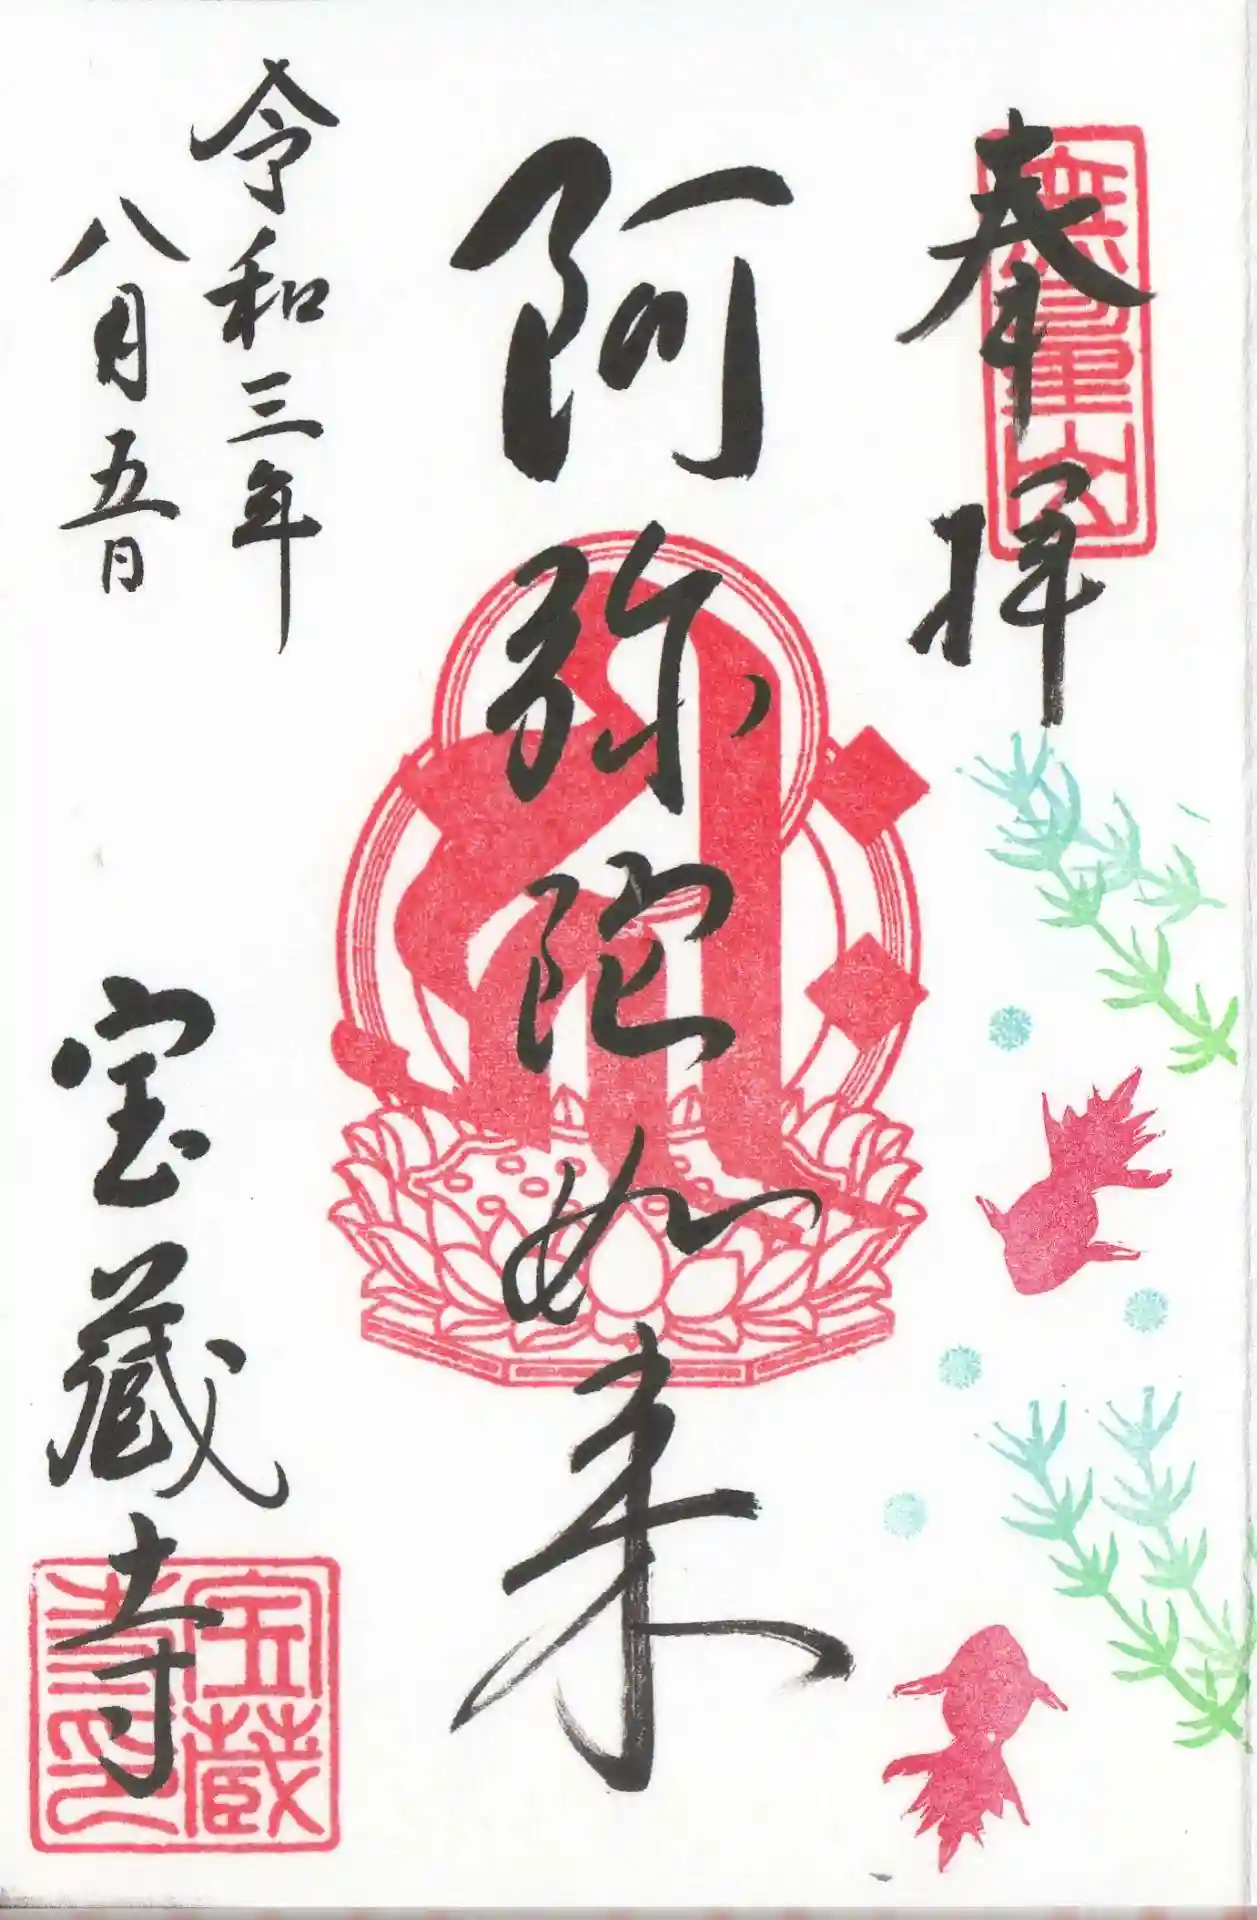 奉拝
無量山
阿弥陀如来
令和三年
八月五日
宝蔵寺
宝蔵
寺印